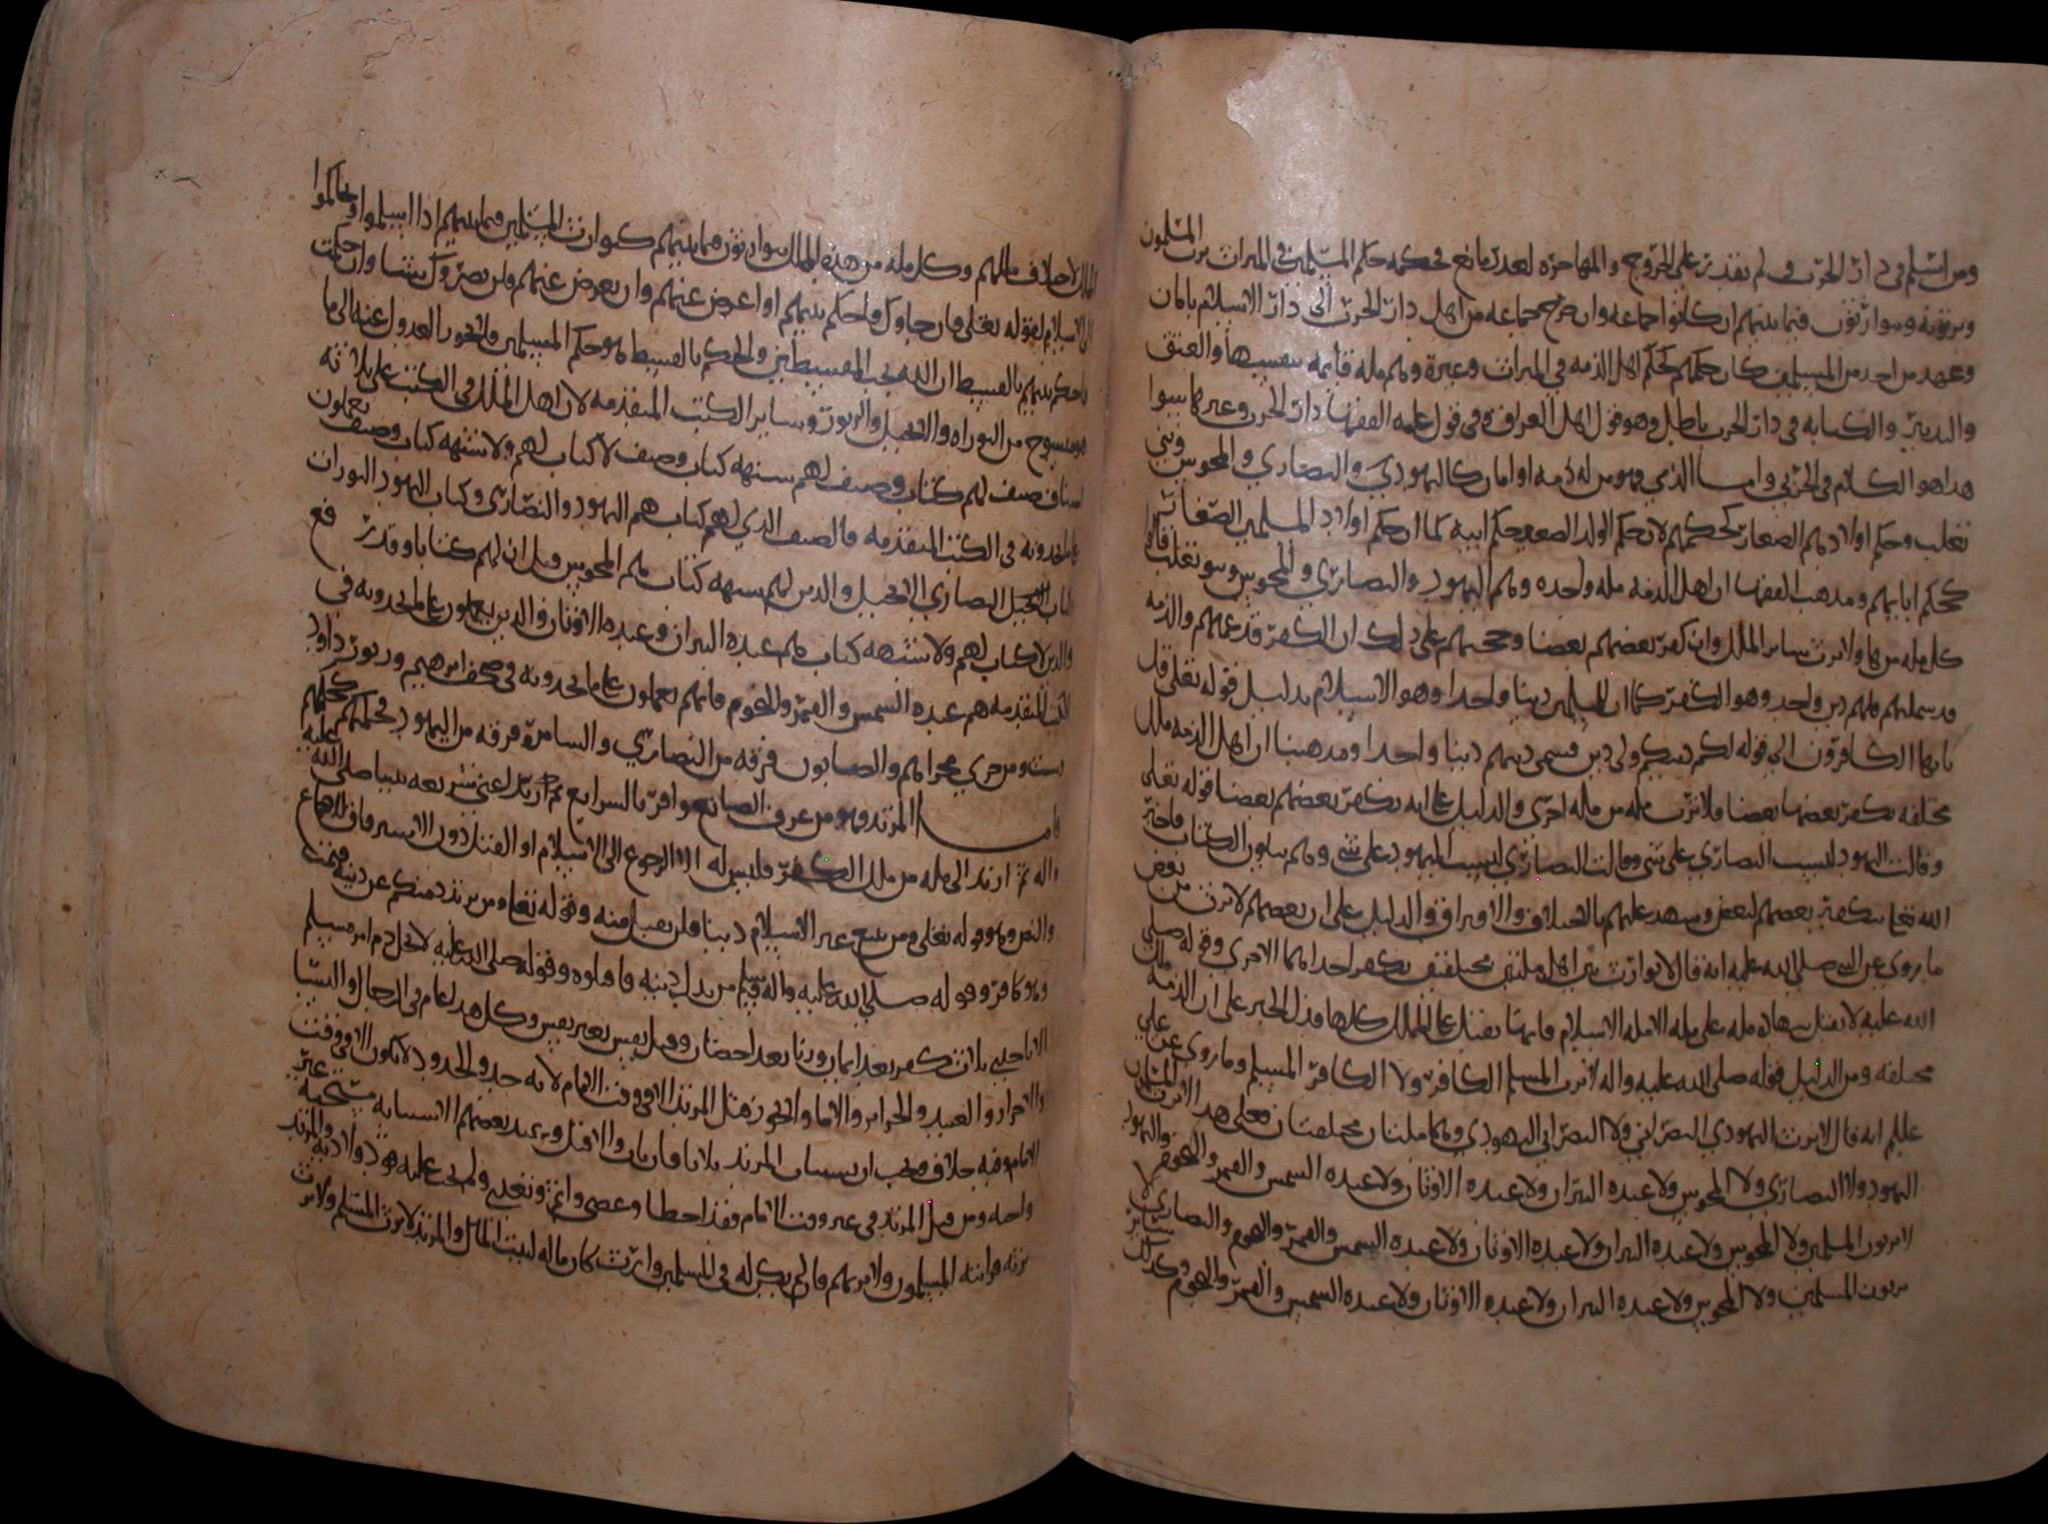 ومن اسلم في دار الحرب ولم يقدر على الخروج والمهاجرة لعذر مانع فحكمه حكم المسلمين في الميراث يرث المسلمون
ويرثونه ويتوارثون فيما بينهم ان كانوا جماعه وان خرج جماعه من اهل دار الحرب الى دار الاسلام بامان
وعهد من احد من المسلمين كان حكمهم كحكم اهل الذمه في الميراث وغيره وهم مله قايمه بنفسها والعتق
والتدبير والكتابه في دار الحرب باطل وهو قول اهل العراق في قول علمه الفقها دار الحرب وغيرها سوا
هذا هو الكلام في الحربي واما الذمي فهو من له ذمه او امان كاليهودي والنصارى والمجوس وبني
تغلب وحكم اولادهم الصغار كحكمهم لان حكم الولد الصغير حكم ابيه كما ان حكم اولاد المسلمين الصغار
كحكم ابايهم ومذهب الفقها ان اهل الذمه مله واحده وهم اليهود والنصارى والمجوس وبنو تغلب فان
كل مله منها ولا يرث ساير الملل وان كفر بعضهم بعضا وحجتهم على ذلك ان الكفر قد عمهم والذمه
قد شملتهم فلهم دين واحد وهو الكفر كما ان للمسلمين دينا واحدا وهو الاسلام بدليل قوله تعلى قل
يايها الكافرون الى قوله لكم دينكم ولي دين فسمى دينهم دينا واحدا ومذهبنا ان اهل الذمه ملل
مختلفه يكفر بعضها بعضا فلا ترث مله من مله اخرى والدليل على انه يكفر بعضهم بعضا قوله تعلى
وقالت اليهود ليست النصارى على شي وقالت النصارى ليست اليهود على شي وهم يتلون الكتاب فاخبر
الله تعلى بتكفير بعضهم لبعض وشهد عليهم بالاختلاف والافتراق والدليل على ان بعضهم لا يرث من بعض
ما روي عن النبي صلى الله عليه انه قال لا توارث بين اهل ملتين مختلفتين يكفر احداهما الاخرى وقوله صلى
الله عليه لا تقبل شهاده مله على مله الا مله الاسلام فانها تقبل على الملل كلها فدل الخبر على ان الذمه ملل
مختلفه ومن الدليل قوله صلى الله عليه واله لا يرث المسلم الكافر ولا الكافر المسلم وما روي عن علي
عليلم انه قال لا يرث اليهودي النصراني ولا النصراني اليهودي وهما ملتان مختلفتان فعلى هذا لا يرث المسلمان
اليهود ولا النصارى ولا المجوس ولا عبده النيران ولا عبده الاوثان ولا عبده الشمس والقمر والنجوم واليهود
لا يرثون المسلمين ولا المجوس ولا عبده النيران ولا عبده الاوثان ولا عبده الشمس والقمر والنجوم والنصارى لا
يرثون المسلمين ولا المجوس ولا عبده النيران ولا عبده الاوثان ولا عبده الشمس والقمر والنجوم وكذلك ساير
الملل لاختلاف مللهم وكل مله من هذه الملل يتوارثون فيما بينهم كتوارث المسلمين فيما بينهم اذا اسلموا وتحاكموا
الى الاسلام لقوله تعلى فان جاوك فاحكم بينهم او اعرض عنهم وان تعرض عنهم فلن يضروك شيا وان حكمت
فاحكم بينهم بالقسط ان الله يحب المقسطين والحكم بالقسط هو حكم المسلمين ولا يجوز العدول عنه الى ما
هو منسوخ من التوراه والانجيل والزبور وساير الكتب المتقدمه لان اهل الملل في الكتب على ثلاثه
اصناف صنف لهم كتاب وصنف لهم شبهه كتاب وصنف لا كتاب لهم ولا شبهه كتاب وصنف يعملون
بما يجدونه في الكتب المتقدمه فالصنف الذي لهم كتاب هم اليهود والنصارى وكتاب اليهود التوراه
وكتاب النصارى الانجيل والذين لهم شبهه كتاب هم المجوس وقيل ان لهم كتابا وقد رفع
والذين لا كتاب لهم ولا شبهه كتاب هم عبده النيران وعبده الاوثان والذين يعملون بما يجدونه في
الكتب المتقدمه هم عبده الشمس والقمر والنجوم فانهم يعملون بما يجدونه في صحف ابرهيم وزبور داود
ومن جرى مجراهم والصابون فرقه من النصارى والسامره فرقه من اليهود فحكمهم كحكمهم
المرتد فهو من عرف الصانع واقر بالشرايع ثم ارتد اعني شريعه نبينا صلى الله عليه
واله ثم ارتد الى مله من ملل الكفر فليس له الا الرجوع الى الاسلام او القتل دون الاسر
والنص وهو قوله تعلى ومن يبتغ غير الاسلام دينا فلن يقبل منه وقوله تعلى ومن يرتدد منكم عن دينه فيمت
وهو كافر وقوله صلى الله عليه واله وسلم من بدل دينه فاقتلوه وقوله صلى الله عليه لا يحل دم امر مسلم
الا باحدى ثلاث كفر بعد ايمان وزنا بعد احصان وقتل نفس بغير نفس وكل هذا عام في الرجال والنسا
والاحرار والعبيد والحراير والاما ولا يجوز قتل المرتد الا في وقت الامام لانه حد والحدود لا تكون الا في وقت
الامام وفيه خلاف ويجب ان يستتاب المرتد ثلاثا فان تاب والا قتل وعند بعضهم الاستتابه مستحبه غير
واجبه ومن قتل المرتد في غير وقت الامام فقد اخطا وعصى واثم وتعدى ولم يجب عليه قود ولا ديه والمرتد
يرثه قرابته المسلمون ولا يرثهم فان لم يكن له في المسلمين وارث كان ماله لبيت المال والمرتد لا يرث المسلم ولا يرث